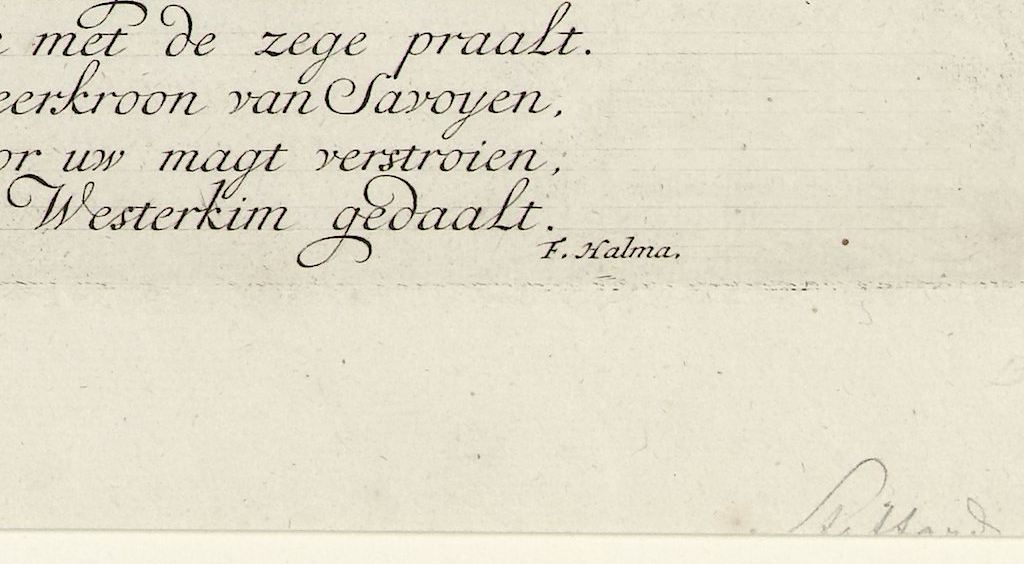 met de zege praalt.
eerkroon van Savoyen,
or uw magt verstroien,
Westerkim gedaalt.
F. Halma.